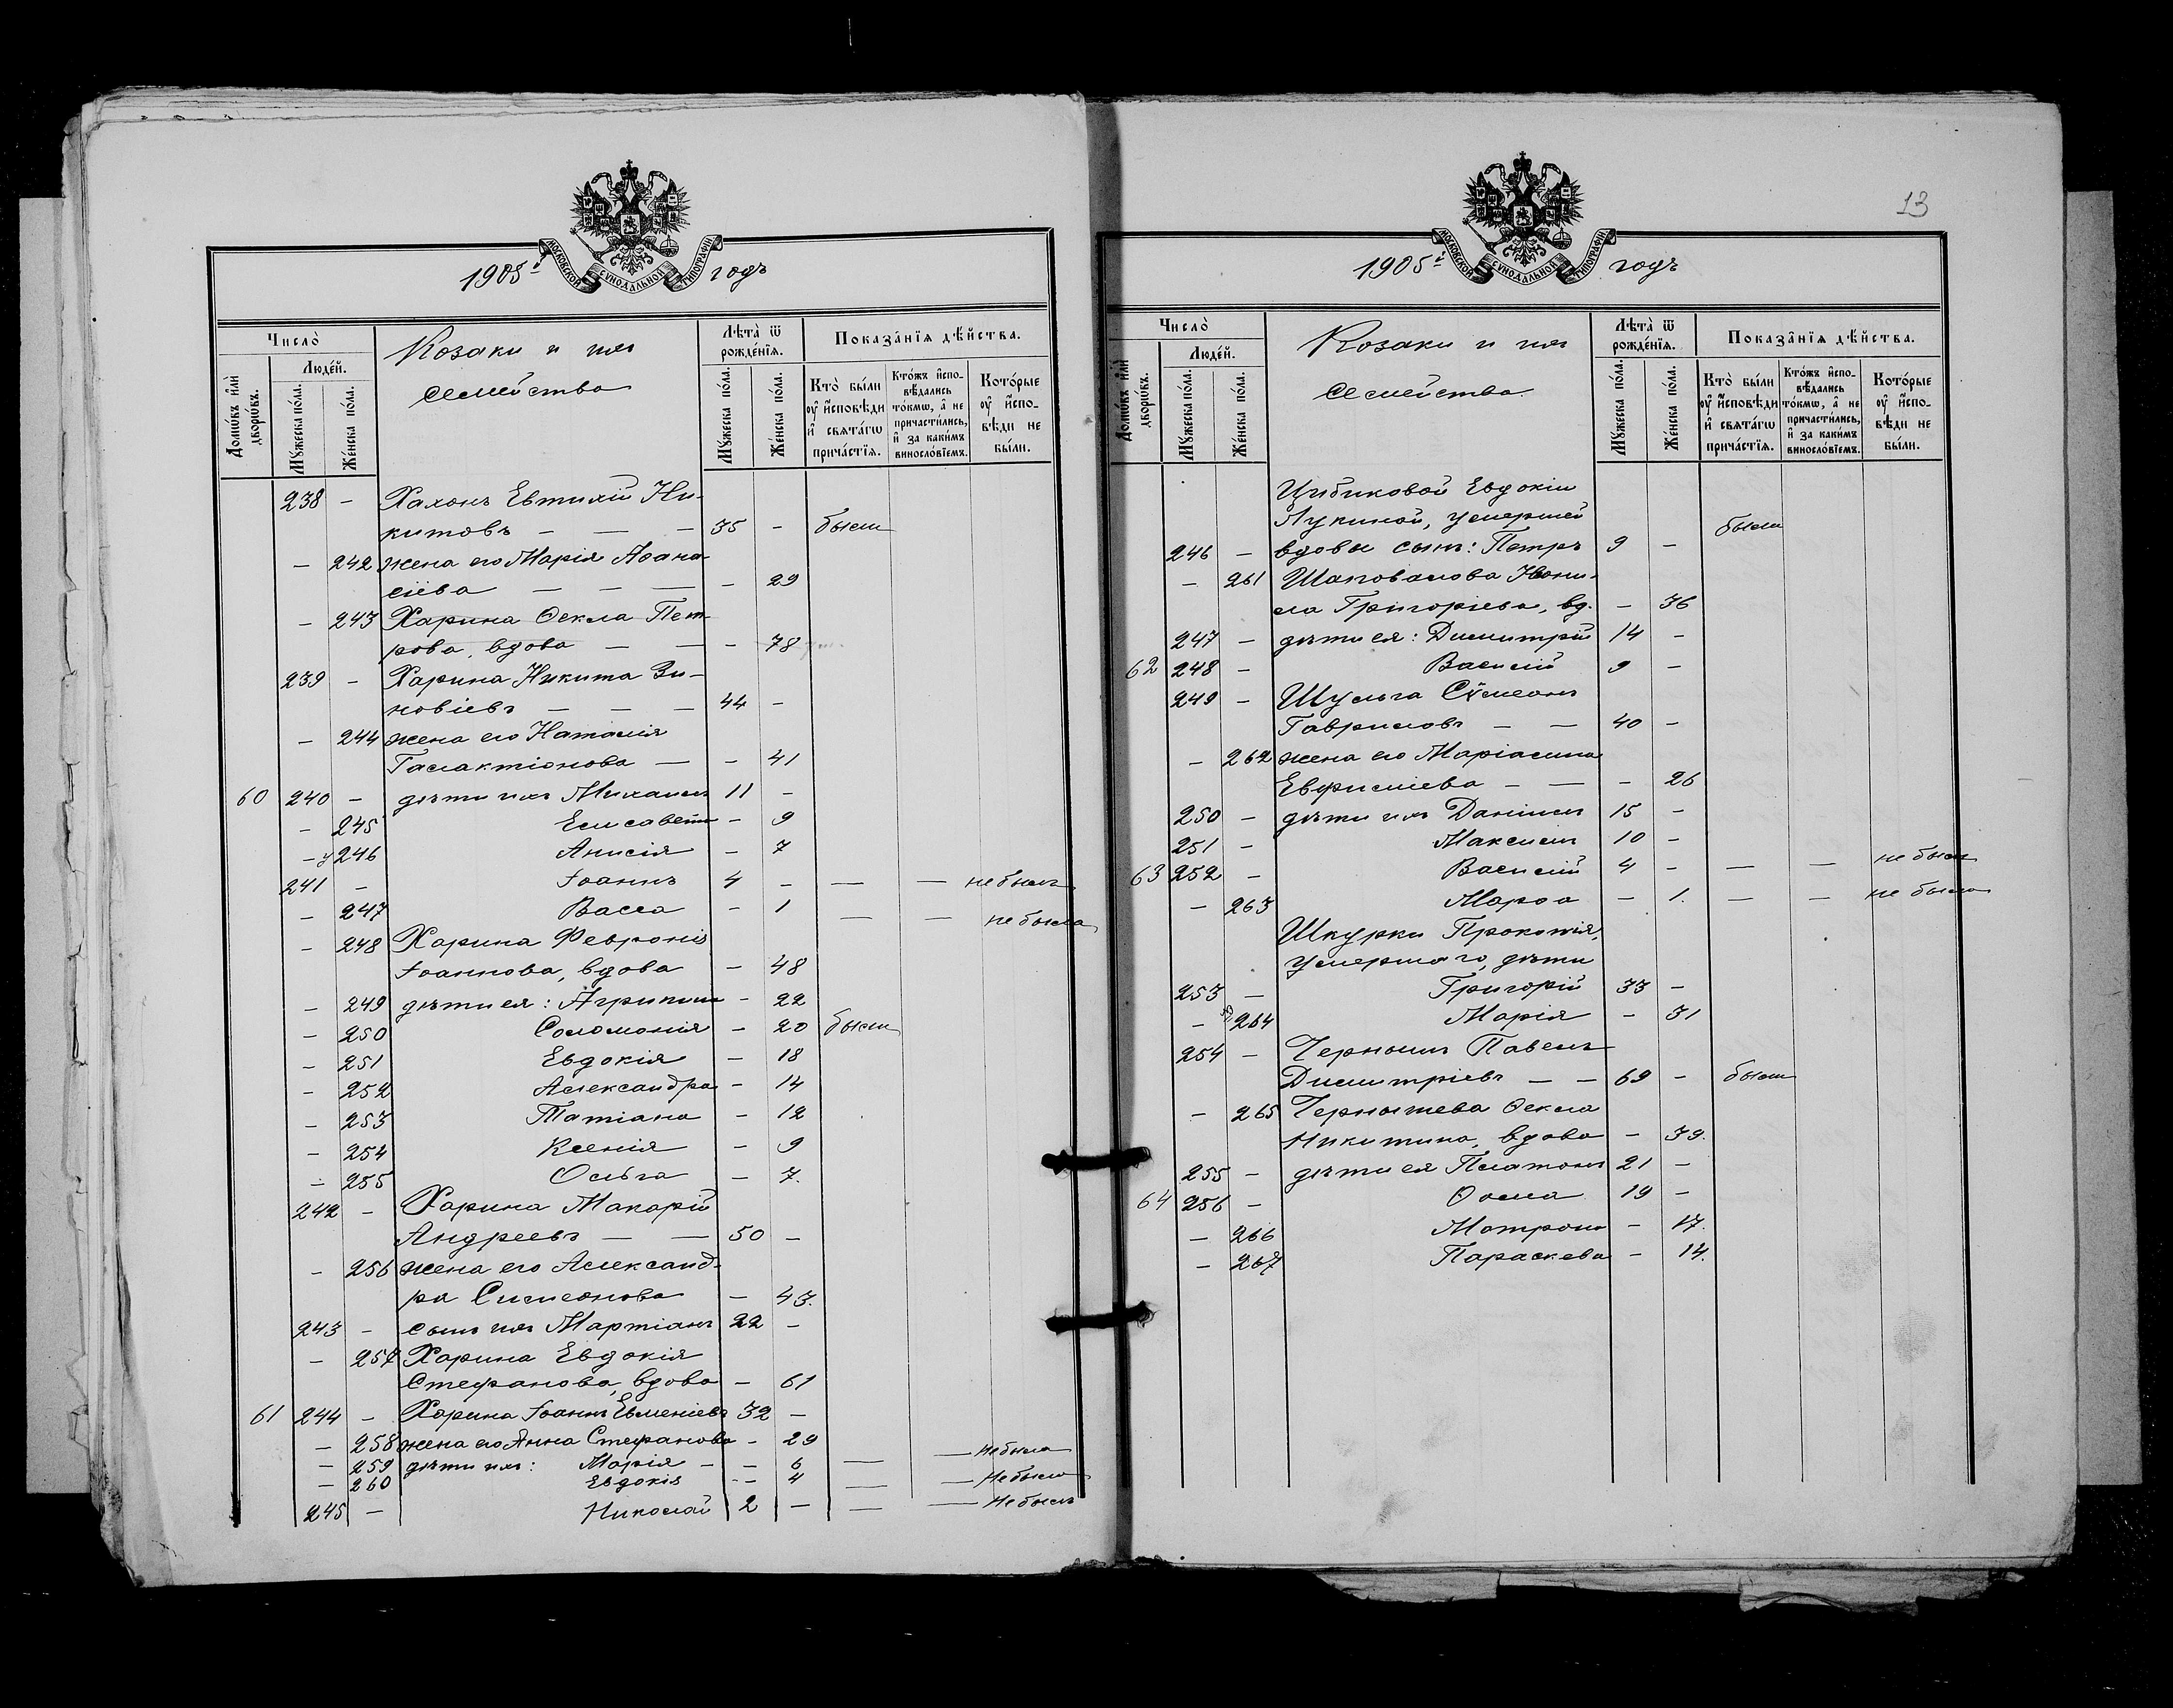 1905й годъ
МОСКОВСКОЙ СУНОДАЛЬНОЙ ТИПОГРАФІИ
Число̀
Людéй.
Домѡ́въ и҆лѝ дворѡ́въ.
Мꙋ́жеска по́ла.
Же́нска по́ла.
Козаки и ихъ
семейства
Лѣта̀ ѿ рождéнїѧ.
Мꙋ́жеска по́ла.
Же́нска по́ла.
Показа̑нїѧ дѣ́йства.
Кто̀ бы́ли ᲂу҆ и҆сповѣди и҆ свѧта́гѡ прича́стїѧ.
Кто́жъ и҆спо-вѣ́дались то́кмѡ, а҆ не причасти́лись, и҆ за каки́мъ виносло́вїемъ.
Кото́рые ᲂу҆ и҆спо-вѣди не бы́ли.
238 - Хахонъ Евтихій Ни-
китовъ — — — 35 - были
- 242 жена его Марія Аѳана-
сіева — — — - 29
- 243 Харина Ѳекла Пет-
рова, вдова — — - 78
239 - Харина Никита Зи-
новіевъ — — — 44 -
- 244 жена его Наталія
Галактіонова — - 41
60 240 - дѣти ихъ Михаилъ 11 -
- 245 Елисавета - 9
- 246 Анисія - 7
241 - Іоаннъ 4 - — — не былъ
- 247 Васса - 1 — — не была
- 248 Харина Февронія
Іоаннова, вдова - 48
- 249 дѣти ея: Агрипина - 22
- 250 Соломонія - 20 были
- 251 Евдокія - 18
- 252 Александра - 14
- 253 Татіана - 12
- 254 Ксенія - 9
- 255 Ольга - 7.
242 - Харина Макарій
Андреевъ — — 50 -
- 256 жена его Александ-
ра Симеонова - 43.
243 - сынъ ихъ Мартіанъ 22 -
- 257 Харина Евдокія
Стефанова, вдова - 61
61 244 - Харина Іоаннъ Евменіевъ 32 -
- 258 жена его Анна Стефанова - 29
- 259 дѣти ихъ: Марія - - 6 — — Не была
- 260 Евдокія - - 4 — — Не была
245 - Николай 2 - — — Не былъ
13
1905й годъ
МОСКОВСКОЙ СУНОДАЛЬНОЙ ТИПОГРАФІИ
Число̀
Людéй.
Домѡ́въ и҆лѝ дворѡ́въ.
Мꙋ́жеска по́ла.
Же́нска по́ла.
Козаки и ихъ
семейства.
Лѣта̀ ѿ рождéнїѧ.
Мꙋ́жеска по́ла.
Же́нска по́ла.
Показа̑нїѧ дѣ́йства.
Кто̀ бы́ли ᲂу҆ и҆сповѣди и҆ свѧта́гѡ прича́стїѧ.
Кто́жъ и҆спо-вѣ́дались то́кмѡ, а҆ не причасти́лись, и҆ за каки́мъ виносло́вїемъ.
Кото́рые ᲂу҆ и҆спо-вѣди не бы́ли.
Цыбиковой Евдокіи
Лукиной, умершей
246 - вдовы сынъ: Петръ 9 - были
- 261 Шаповалова
Григоріева, вд. - 36
247 - дѣти ея: Димитрій 14 -
62 248 - Василій 9 -
249 - Шульга Сѵмеонъ
Гавриловъ — — 40 -
- 262 жена его Маріамна
- 26
250 - дѣти ихъ Даніилъ 15 -
251 - Максимъ 10 -
63 252 - Василій 4 - — — не былъ
- 263 Марѳа - 1. — — не была
Шкурки Прокопія,
умершаго, дѣти
253 - Григорій 33 -
- 264 Марія - 31
254 - Чернышъ Павелъ
Димитріевъ — — 69 - были
- 265 Чернышева Ѳекла
Никитина, вдова - 39.
255 - дѣти ея Платонъ 21 -
64 256 - Ѳома 19 -
- 266 Матрона - 17.
- 267 Параскева - 14.